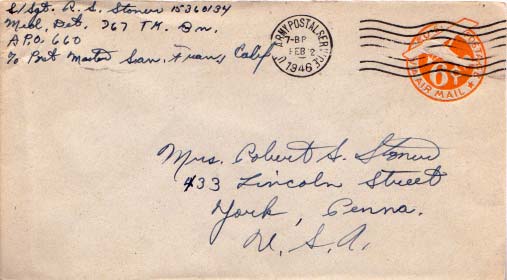 S/Sgt. R. S. Stoner 15360134
Med. Det. 767 T.K. Bn.
A.P.O. 660
c/o Post Master San. Fran, Calif
U.S. ARMY POSTAL SERVICE
FEB 2
1946
VIA AIR MAIL
6¢
Mrs. Robert S. Stoner
433 Lincoln Street
York, Penna.
U. S. A.